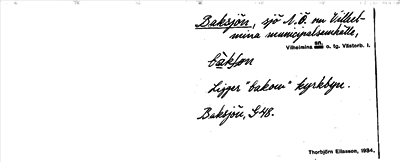 Baksjön, sjö N.Ö. om Vilhel-
mina municipalsamhälle,
Vilhelmina sn o. tg. Västerb. l.
bàkʃɷn
Ligger "bakom" kyrkbyn.
Baksjön, G 48.
Thorbjörn Eliasson, 1934.